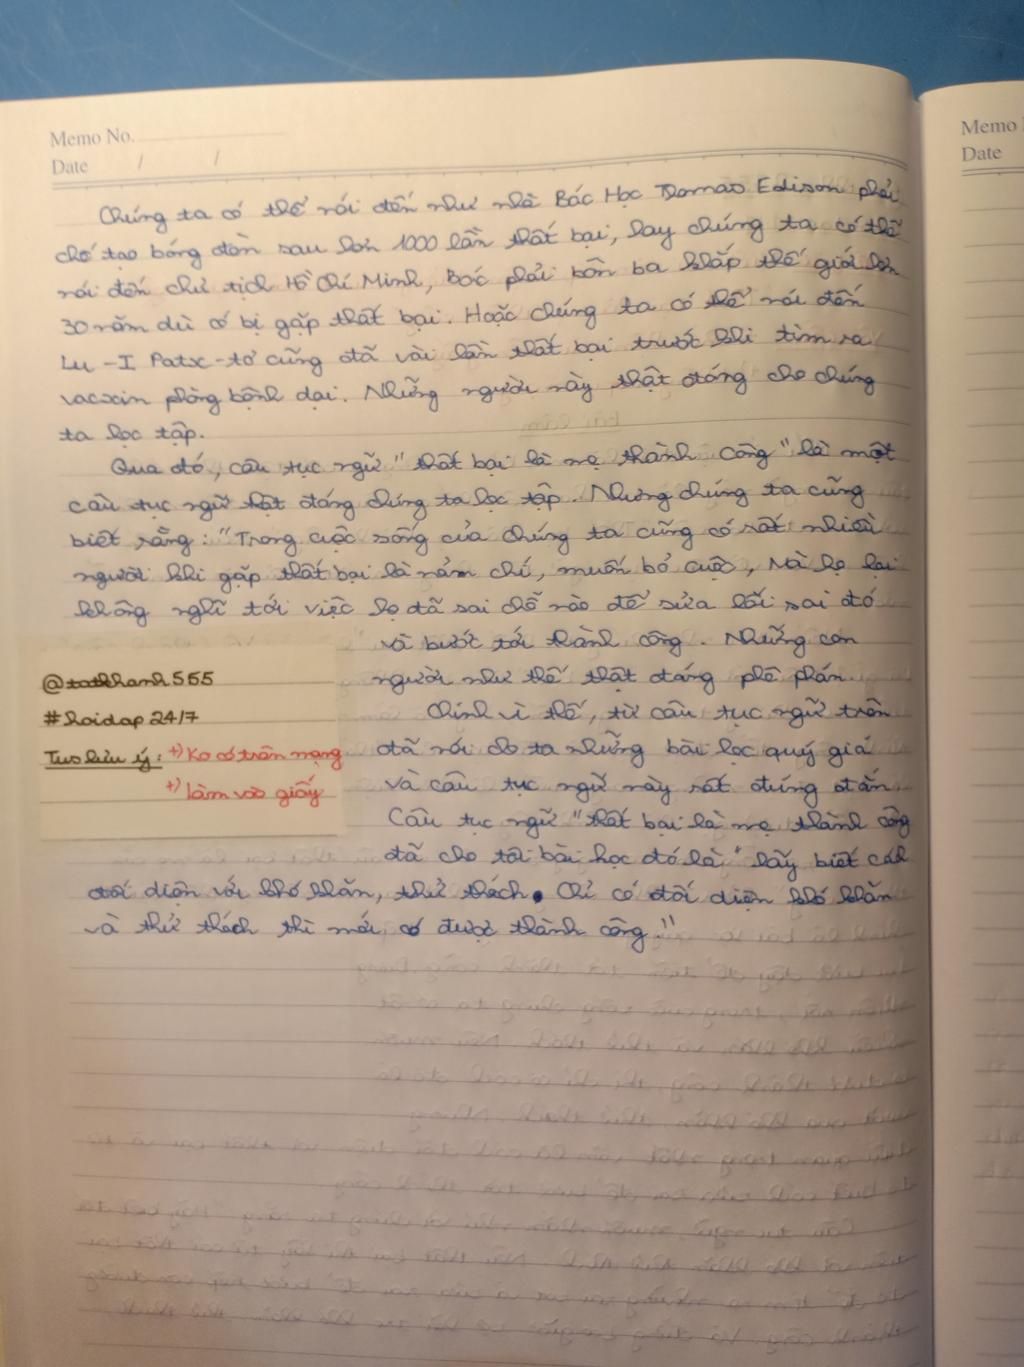 Memo No.
Date / /
Memo
Date
Chúng ta có thể nói đến như nhà Bác Học Thomas Edison phải
chế tạo bóng đèn sau hơn 1000 lần thất bại, hay chúng ta có thể
nói đến chủ tịch Hồ Chí Minh, Bác phải bôn ba khắp thế giới hơn
30 năm dù có bị gặp thất bại. Hoặc chúng ta có thể nói đến
Lu-I Patx-tơ cũng đã vài lần thất bại trước khi tìm ra
vacxin phòng bệnh dại. Những người này thật đáng cho chúng
ta học tập.
Qua đó, câu tục ngữ "thất bại là mẹ thành công" là một
câu tục ngữ thật đáng chúng ta học tập. Nhưng chúng ta cũng
biết rằng: "Trong cuộc sống của chúng ta cũng có rất nhiều
người khi gặp thất bại là nản chí, muốn bỏ cuộc, Mà họ lại
không nghĩ tới việc họ đã sai chỗ nào để sửa lỗi sai đó
và bước tới thành công. Những con
người như thế thật đáng phê phán
Chính vì thế, từ câu tục ngữ trên
đã nói cho ta những bài học quý giá
và câu tục ngữ này rất đúng đắn.
Câu tục ngữ "thất bại là mẹ thành công
đã cho tôi bài học đó là "hãy biết cách
đối diện với khó khăn, thử thách. Chỉ có đối diện khó khăn
và thử thách thì mới có được thành công."
@tathhanh565
#hoidap24/7
Tus lưu ý: +) Ko có trên mạng
+) làm vào giấy